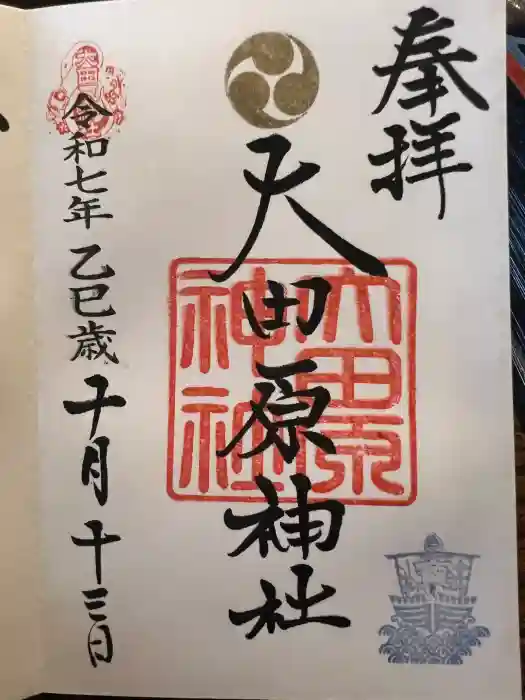 奉拝
大田原神社
令和七年 乙巳歳 十月 十三日
大田原
神社